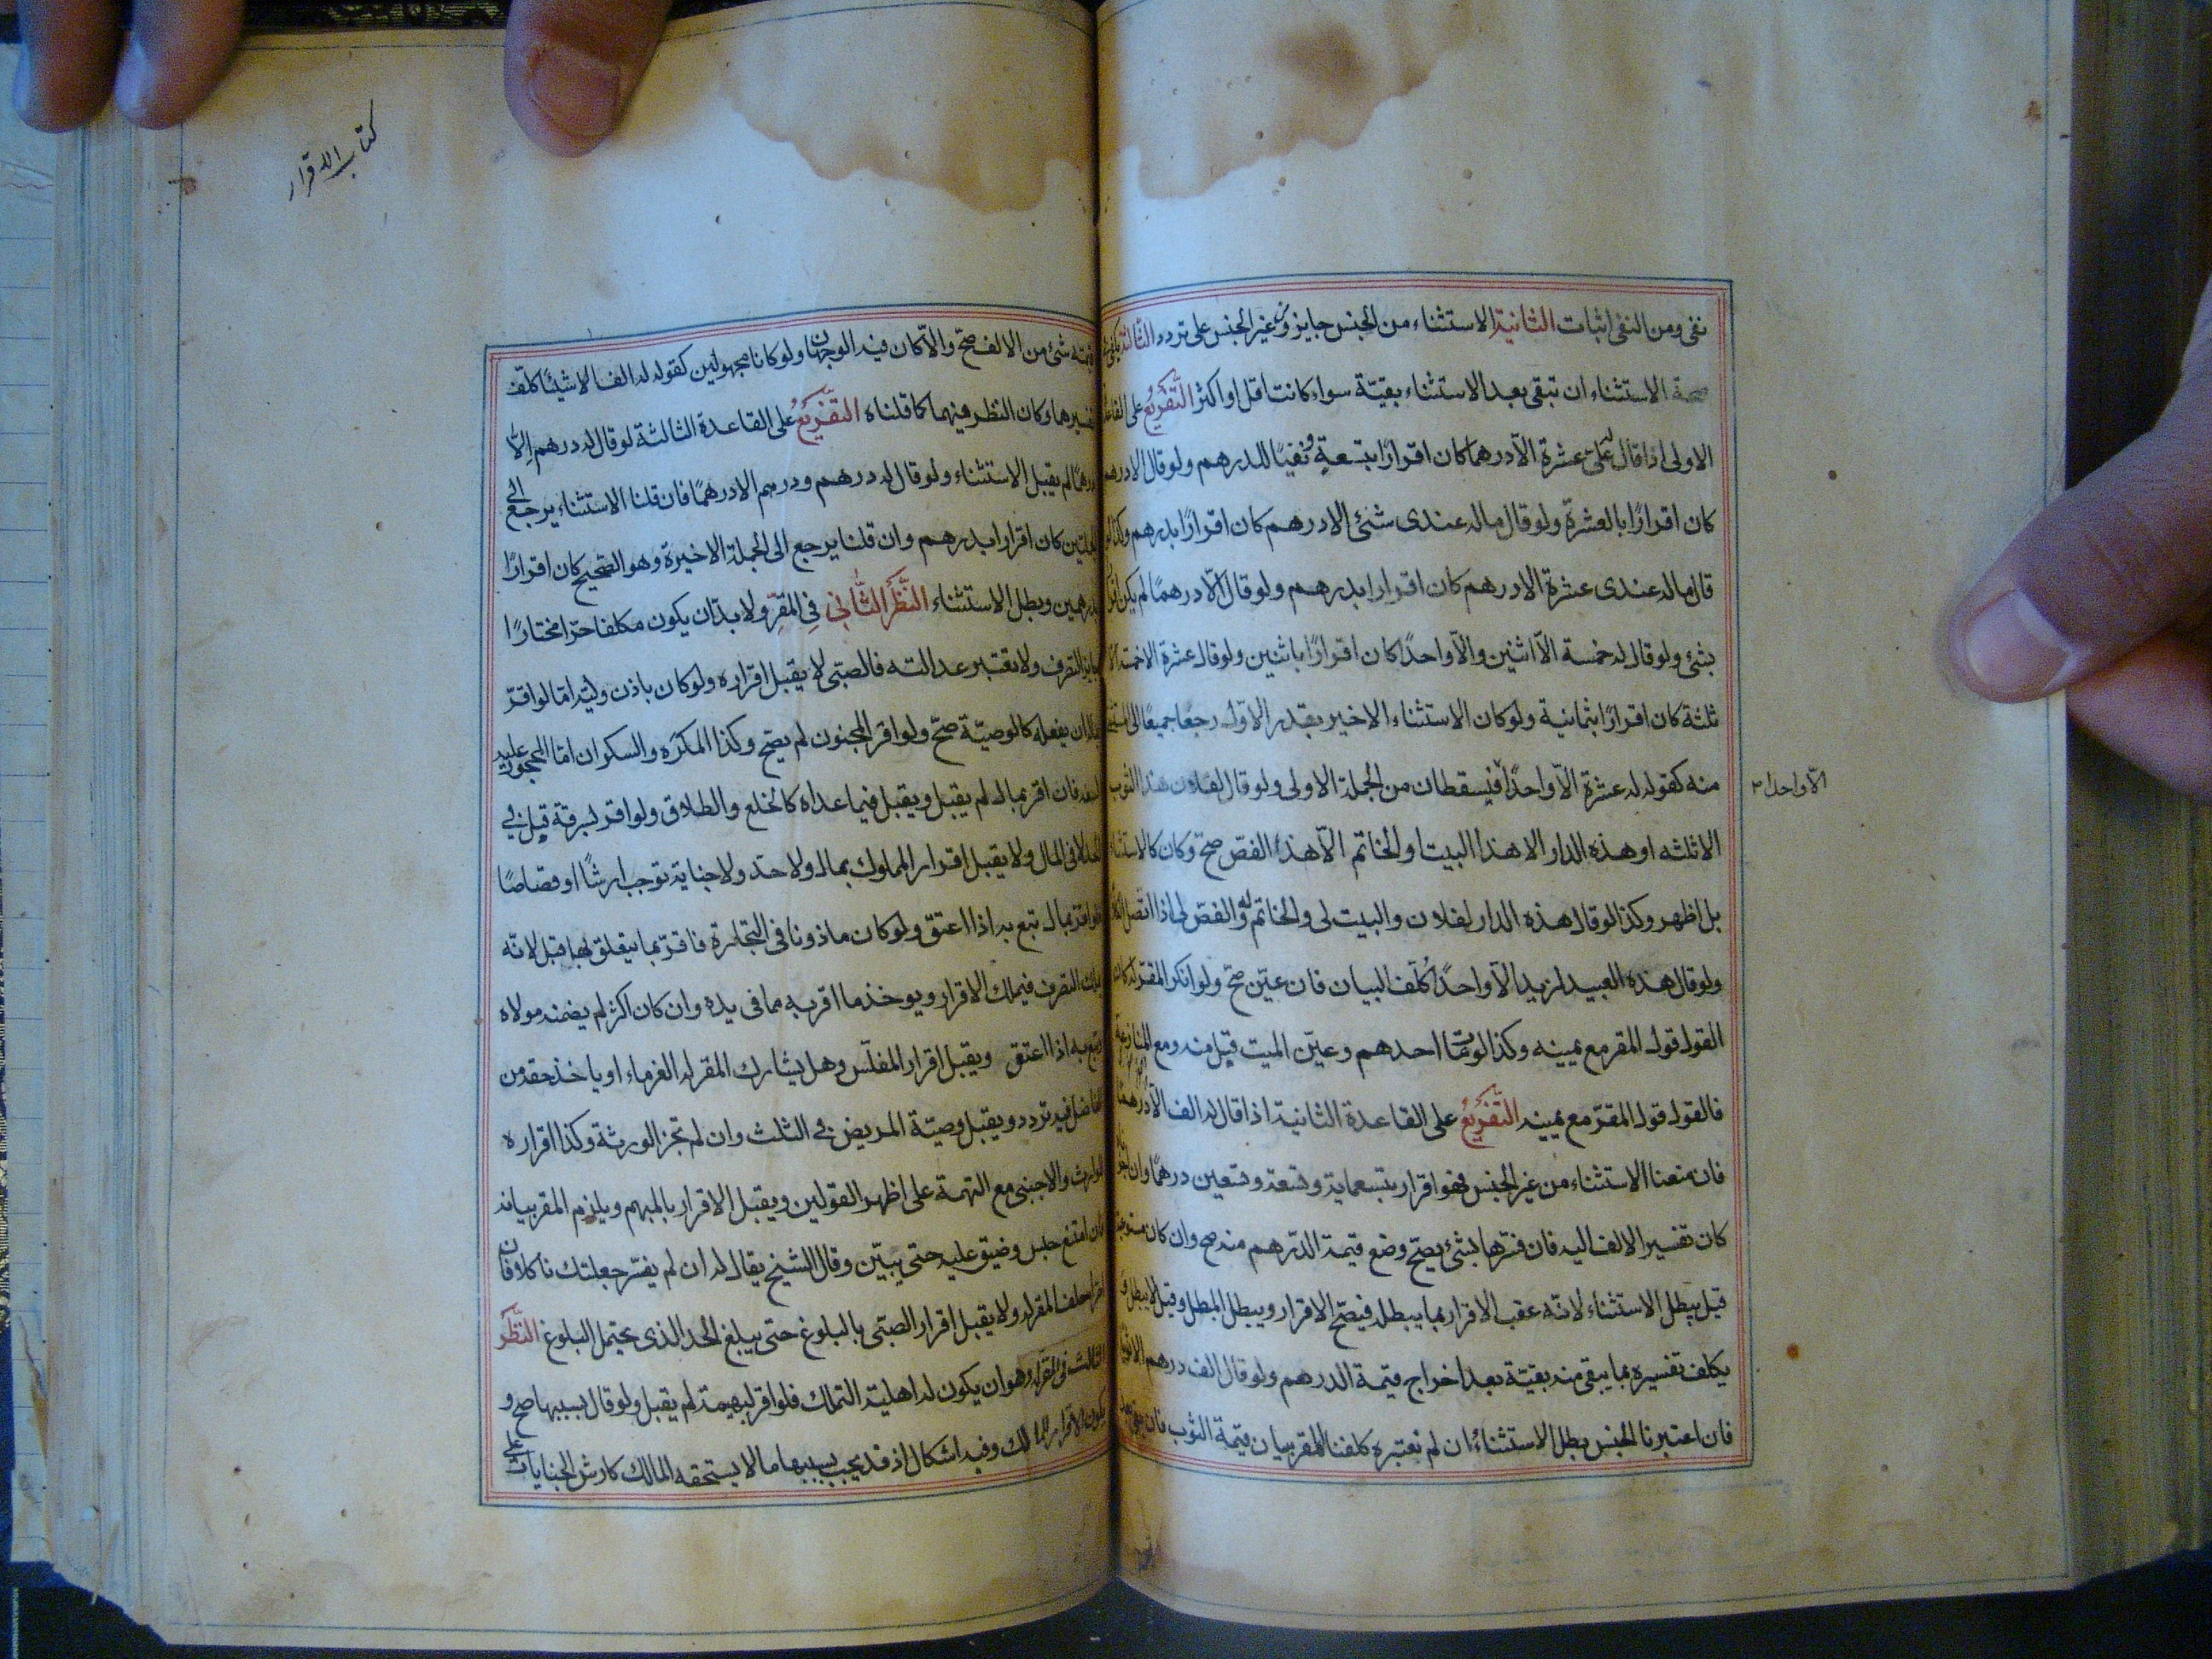 نفى ومن النفى اثبات الثانية الاستثناء من الجنس جايز ومن غير الجنس على تردد الثالثة يكفى
صحة الاستثناء ان تبقى بعد الاستثناء بقيّة سواء كانت اقل او اكثر التَّفْرِيعُ على القاعدة
الاولى اذا قال له علىّ عشرة الّا درهما كان اقرارًا بتسعةٍ ونفيًا للدرهم ولو قال الا درهم
كان اقرارًا بالعشرة ولو قال ماله عندى شئ الا درهم كان اقرارًا بدرهم وكذا لو
قال ماله عندى عشرة الا درهم كان اقرارا بدرهم ولو قال الّا درهمًا لم يكن اقرارا
بشئ ولو قال له خمسة الّا اثنين والّا واحدًا كان اقرارًا باثنين ولو قال عشرة الا خمسة الا
ثلثة كان اقرارًا بثمانية ولو كان الاستثناء الاخير بقدر الاوّل رجعا جميعًا الى المستثنى
منه كقوله له عشرة الّا واحدًا فيسقطان من الجملة الاولى ولو قال لفلان هذا الثوب
الّا واحدا ٣
الا ثلثه او هذه الدار الا هذا البيت او الخاتم الّا هذا الفصّ صحّ وكان كالاستثناء
بل اظهر وكذا لو قال هذه الدار لفلان والبيت لى والخاتم له والفصّ لى اذا اتصل الكلام
ولو قال هذه العبيد لزيد الّا واحدًا كُلّف البيان فان عيّن صحّ ولو انكر المقر له كان
القول قول المقر مع يمينه وكذا لو مات احدهم وعيّن الميت قبل منه ومع المنازعة
فالقول قول المقرّ مع يمينه التَّفْرِيعُ على القاعدة الثانية اذا قال له الف الّا درهمًا
فان منعنا الاستثناء من غير الجنس فهو اقرار بتسعماية وتسعة وتسعين درهمًا وان
كان تفسير الالف اليه فان فسّرها بشئ يصحّ وضع قيمة الدّرهم منه صح وان كان مستوعبة
قيل يبطل الاستثناء لانّه عقب الاقرار بما يبطله فيصحّ الاقرار ويبطل المبطل وقيل لا يبطل و
يكلف تفسيره بما يبقى منه بقيّة بعد اخراج قيمة الدرهم ولو قال الف درهم الا ثوبا
فان اعتبرنا الجنس بطل الاستثناء وان لم نعتبره كلفنا المقر بيان قيمة الثوب فان بقى بعد
كتاب الاقرار
قيمته شئ من الالف صحّ والّا كان فيه الوجهان ولو كانا مجهولين كقوله له الف الا شيئا كلّف
تفسيرهما وكان النظر فيهما كما قلناه التَّفْرِيعُ على القاعدة الثالثة لو قال له درهم الّا
درهمًا لم يقبل الاستثناء ولو قال له درهم ودرهم الا درهمًا فان قلنا الاستثناء يرجع الى
الجملتين كان اقرارا بدرهم وان قلنا يرجع الى الجملة الاخيرة وهو الصّحيح كان اقرارًا
بدرهمين وبطل الاستثناء النَّظَرُ الثَّانِى فِى المُقِرّ ولا بدّ ان يكون مكلفا حرّا مختارًا
جايز التصرف ولا تعتبر عدالته فالصبّى لا يقبل اقراره ولو كان باذن وليّه امّا لو اقرّ
بماله ان يفعله كالوصيّة صحّ ولو اقر المجنون لم يصحّ وكذا المكرَه والسكران امّا المحجور عليه
للسفه فان اقر بمال لم يقبل ويقبل فيما عداه كالخلع والطلاق ولو اقر بسرقة قبل فى
الحد لا فى المال ولا يقبل اقرار المملوك بمال ولا حدّ ولا جناية توجب ارشًا او قصاصًا
ولو اقرّ بمال تبع به اذا اعتق ولو كان ماذونا فى التجارة فاقرّ بما يتعلّق بها قبل لانّه
يملك التصرف فيملك الاقرار ويوخذ ما اقر به مما فى يده وان كان اكثر لم يضمنه مولاه
وتبع به اذا اعتق ويقبل اقرار المفلّس وهل يشارك المقر له الغرماء او ياخذ حقه من
الفاضل فيه تردد ويقبل وصيّة المريض فى الثلث وان لم تجز الورثة وكذا اقراره
للوارث والاجنبى مع التهمة على اظهر القولين ويقبل الاقرار بالمبهم ويلزم المقر بيانه
فان امتنع حبس وضيق عليه حتى يبيّن وقال الشيخ يقال له ان لم يفسّر جعلتك ناكلا فان
اصرّ احلف المقر له ولا يقبل اقرار الصبّى بالبلوغ حتى يبلغ الحد الذى يحتمل البلوغ النَّظَر
الثالث فى المقر له وهو ان يكون له اهلية التملك فلو اقر لبهيمة لم يقبل ولو قال بسببها صح و
يكون الاقرار للمالك وفيه اشكال اذ قد يجب بسببها ما لا يستحقه المالك كارش الجنايات على